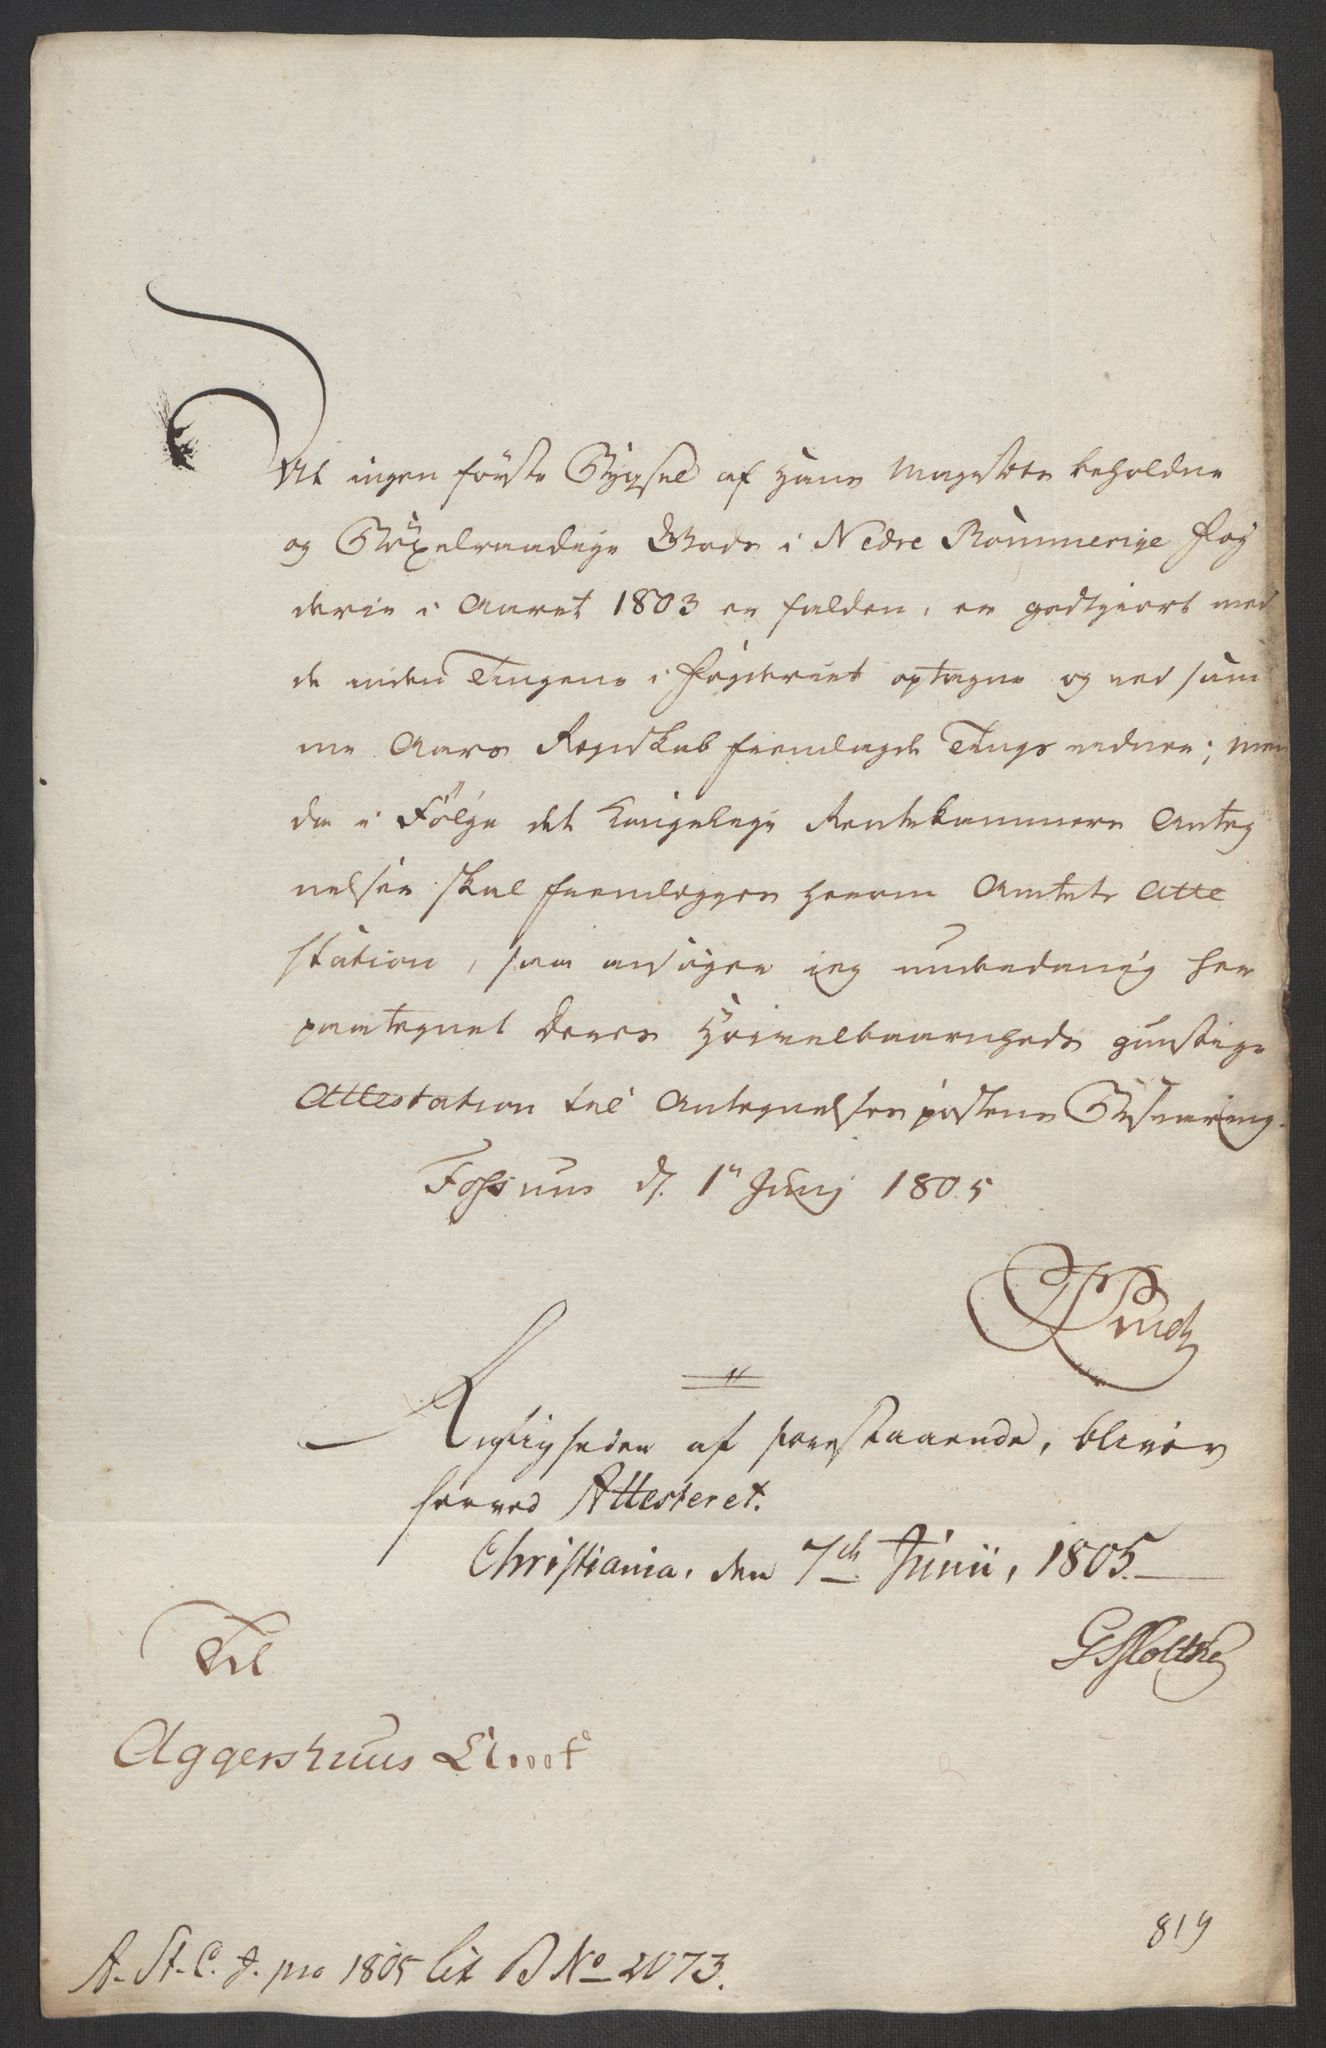 At ingen første Bygsel af Hans Majestets beholdne
og Bÿxelraadige Gods i Nedre Rommerige Fog
derie i Aaret 1803 er falden, er godtgiort med
de inden Tingene i Fogderiet optagne og ved sam
me Aars Regnskab fremlagde Tings vidner; men
da i Følge det Kongelige Rentekammers Anteg
nelser skal fremlegges herom Amtets Atte
station, saa ansøger jeg underdanig her
paategnet Deres Høivelbaarenheds gunstige
Attestation til Antegnelses postens Besvaring.
Fossum d. 1ᵗᵉ Junj 1805
Rigtigheden af forestaaende, bliver
herved Attesteret.
Christiania, den 7de Junii, 1805.
GMoltke
Til
Aggershuus Amt
819
A. St. C. J. pro 1805 lit B No 2073.